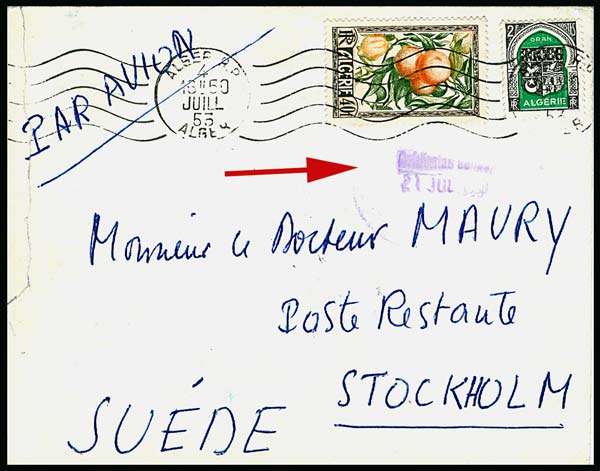 PAR AVION
ALGER R.P.
4
16H50
JUILL
53
ALGER
RF ALGÉRIE 40F
2F
ORAN
ALGÉRIE
21 JUL
Monsieur le Docteur MAURY
Poste Restante
STOCKHOLM
SUÉDE